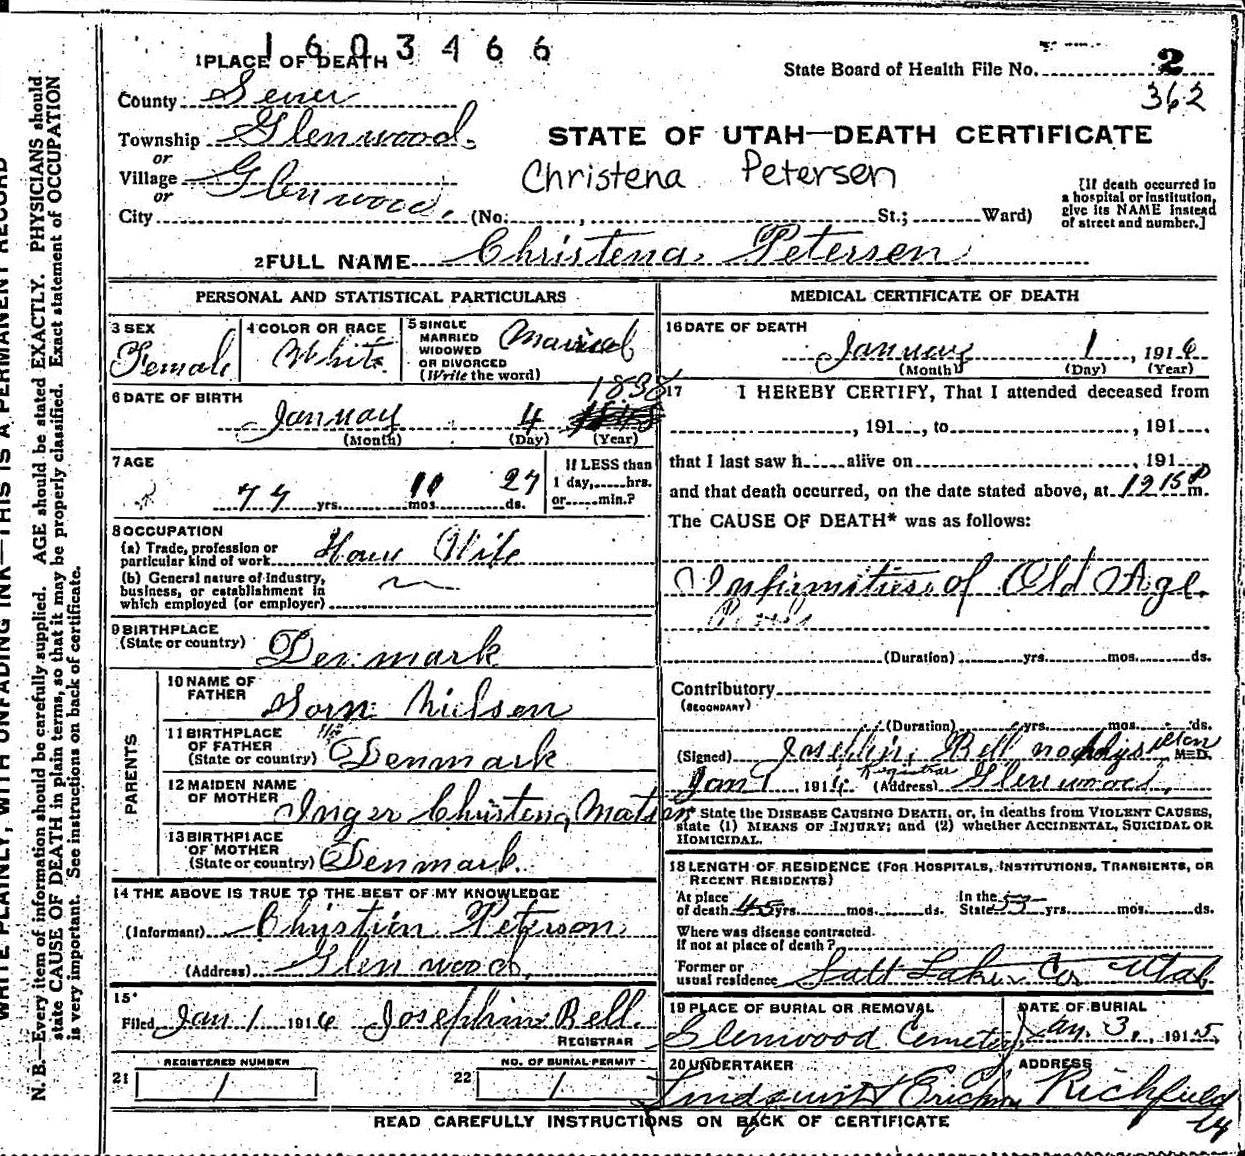 1603466
1 PLACE OF DEATH
State Board of Health File No. 2
362
County Sevier
Township Glenwood.
or
Village Glenwood.
or
City (No: , St.; Ward)
STATE OF UTAH—DEATH CERTIFICATE
Christena Petersen
[If death occurred in
a hospital or institution,
give its NAME instead
of street and number.]
2 FULL NAME Christena Petersen
PERSONAL AND STATISTICAL PARTICULARS
3 SEX
Female
4 COLOR OR RACE
White
5 SINGLE
MARRIED
WIDOWED
OR DIVORCED
(Write the word)
Married
6 DATE OF BIRTH
1838
January 4
(Month) (Day) (Year)
7 AGE
77 yrs. 11 mos. 27 ds.
If LESS than
1 day, hrs.
or min.?
8 OCCUPATION
(a) Trade, profession or
particular kind of work House Wife
(b) General nature of industry,
business, or establishment in
which employed (or employer)
9 BIRTHPLACE
(State or country) Denmark
PARENTS
10 NAME OF
FATHER Sorn Nielsen
11 BIRTHPLACE
OF FATHER
(State or country) Denmark
12 MAIDEN NAME
OF MOTHER Inger Christena Matsen
13 BIRTHPLACE
OF MOTHER
(State or country) Denmark.
14 THE ABOVE IS TRUE TO THE BEST OF MY KNOWLEDGE
(Informant) Christien Peterson
(Address) Glenwood,
15
Filed Jan 1 1916 Josephine Bell.
REGISTRAR
REGISTERED NUMBER
21 1
NO. OF BURIAL PERMIT
22 1
MEDICAL CERTIFICATE OF DEATH
16 DATE OF DEATH
January 1, 1916
(Month) (Day) (Year)
17 I HEREBY CERTIFY, That I attended deceased from
, 191 , to , 191 .
that I last saw h alive on , 191
and that death occurred, on the date stated above, at 1215 P m.
The CAUSE OF DEATH* was as follows:
Infirmities of Old Age.
(Duration) yrs. mos. ds.
Contributory
(SECONDARY)
(Duration) yrs. mos. ds.
(Signed) Josephine Bell no physician M.D.
Jan 1, 1916 Registrar (Address) Glenwood,
* State the DISEASE CAUSING DEATH, or, in deaths from VIOLENT CAUSES,
state (1) MEANS OF INJURY; and (2) whether ACCIDENTAL, SUICIDAL OR
HOMICIDAL.
18 LENGTH OF RESIDENCE (FOR HOSPITALS, INSTITUTIONS, TRANSIENTS, OR
RECENT RESIDENTS)
At place
of death 45 yrs. mos. ds.
In the
State 53 yrs. mos. ds.
Where was disease contracted.
If not at place of death?
Former or
usual residence Salt Lake Co Utah
19 PLACE OF BURIAL OR REMOVAL
Glenwood Cemetery
DATE OF BURIAL
Jan. 3, 1915,
20 UNDERTAKER
ADDRESS
Richfield
READ CAREFULLY INSTRUCTIONS ON BACK OF CERTIFICATE
WRITE PLAINLY, WITH UNFADING INK—THIS IS A PERMANENT RECORD
N. B.—Every item of information should be carefully supplied. AGE should be stated EXACTLY. PHYSICIANS should
state CAUSE OF DEATH in plain terms, so that it may be properly classified. Exact statement of OCCUPATION
is very important. See instructions on back of certificate.